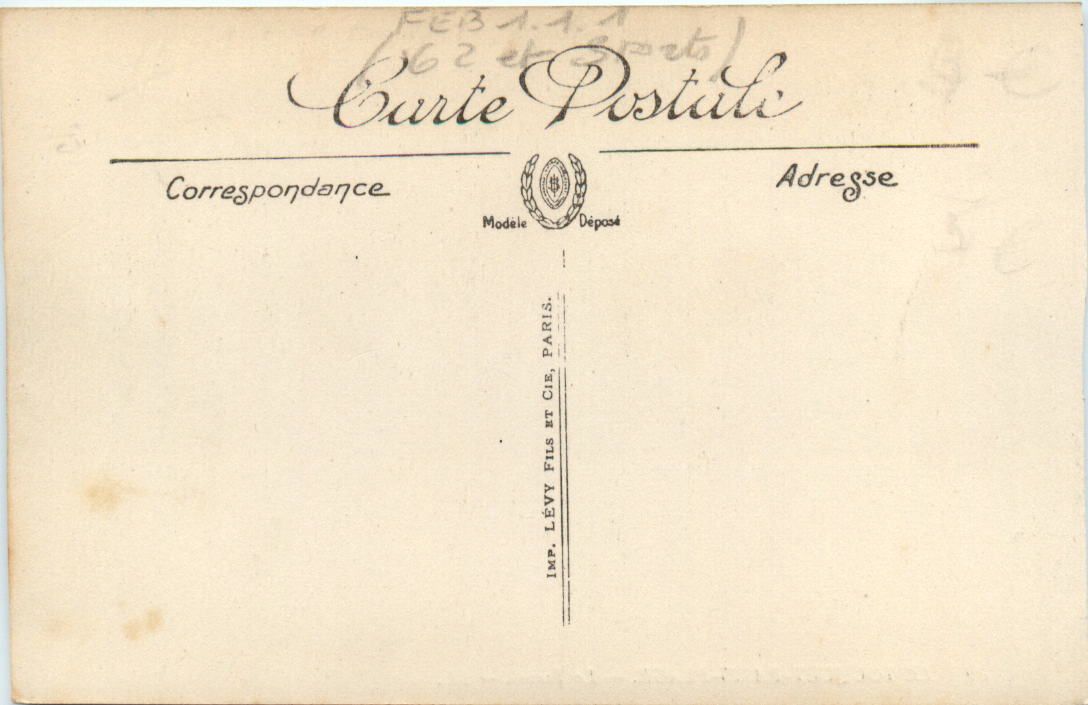 FEB 1.1.1
(62 et Sports)
Carte Postale
Correspondance
Adresse
Modèle Déposé
IMP. LÉVY FILS ET CIE, PARIS.